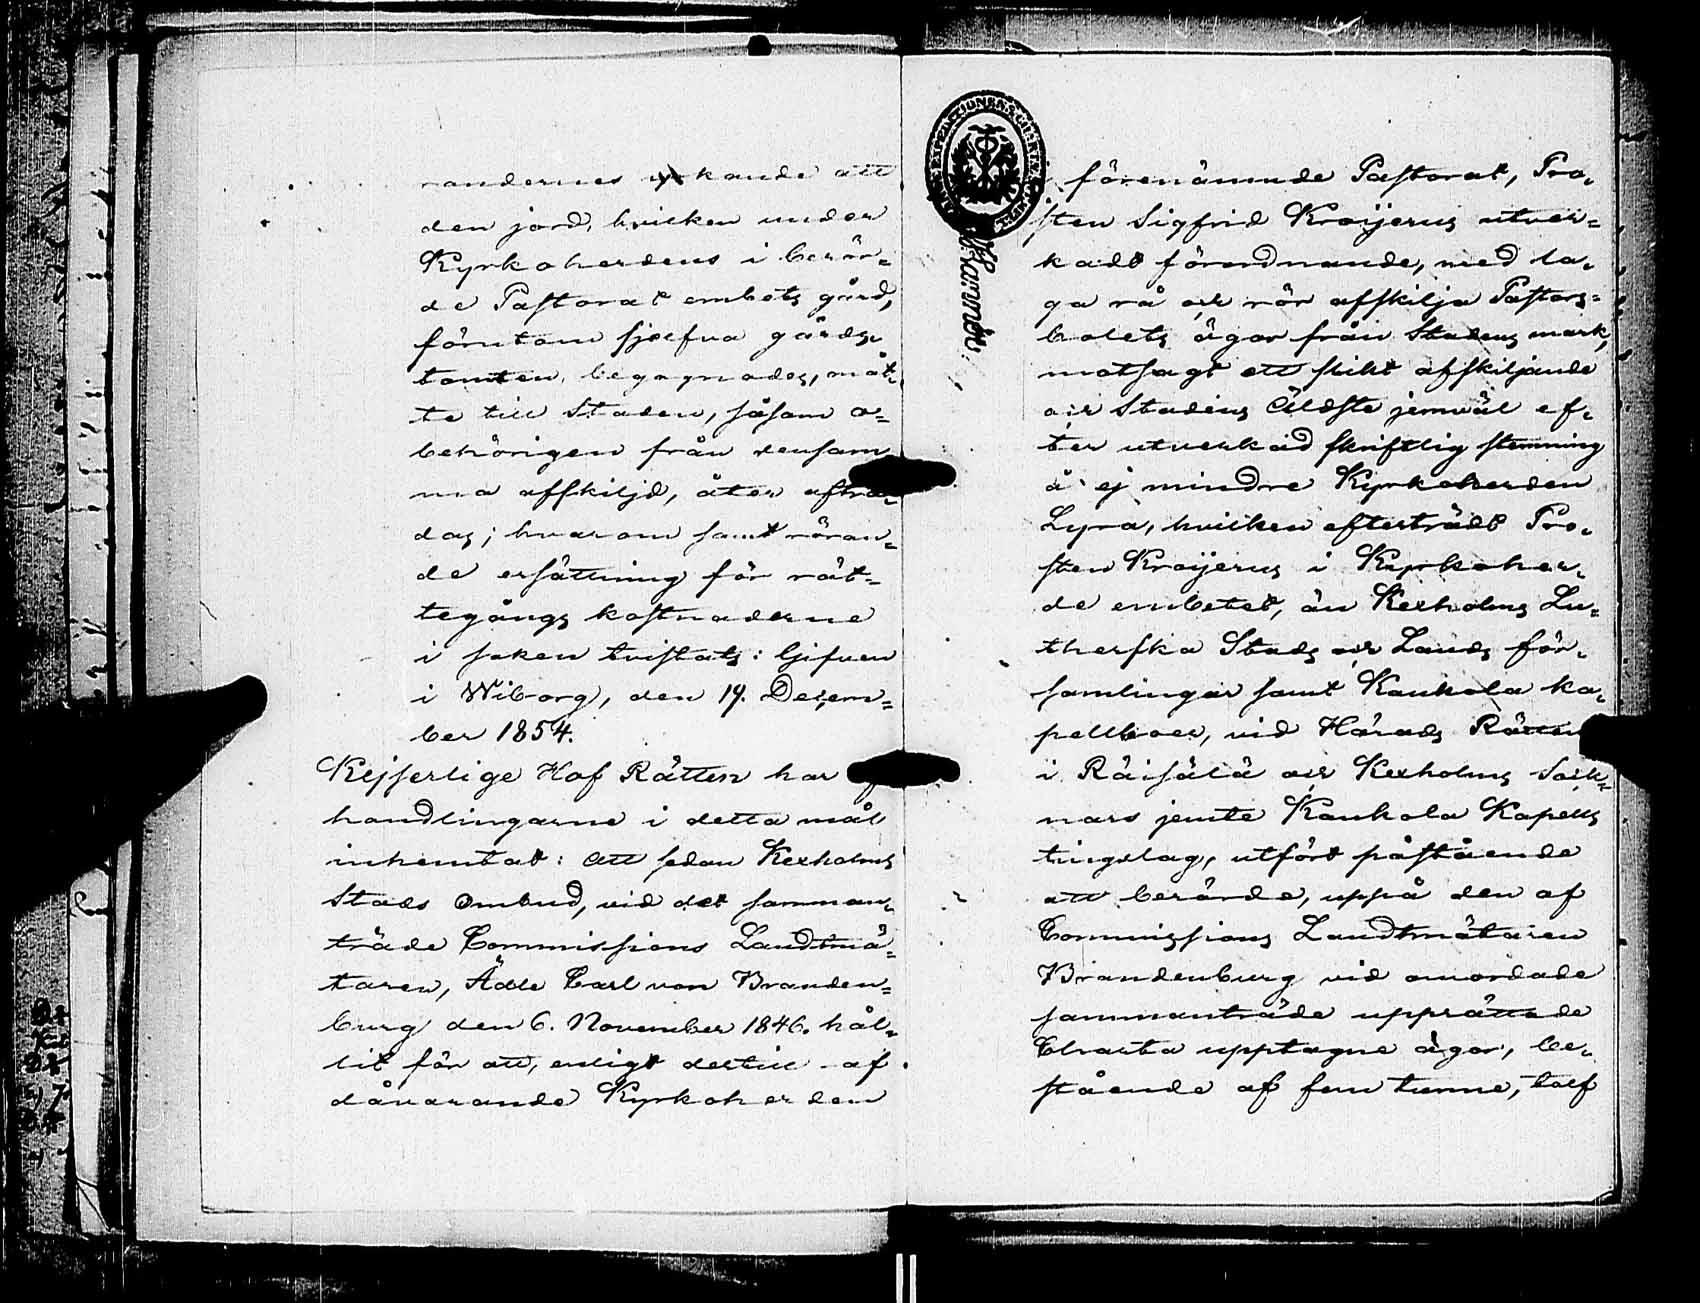 randernes yrkande att
den jord, hvilken under
Kyrkoherdens i berör-
de Pastorat embets gård,
förutom sjelfva gårds
tomten, begagnades, måt-
te till Staden, såsom o-
behörigen från densam
ma afskiljd, åter afträ-
das; hvarom samt röran-
de ersättning för rät-
tegångs kostnaderne
i saken tvistats: Gifven
i Wiborg, den 19. Decem-
ber 1854.
Kejserlige Hof Rätten har af
handlingarne i detta mål
inhemtat: att sedan Kexholms
Stads Ombud, vid det samman-
träde Commissions Landtmä-
taren, Ädle Carl von Branden-
burg den 6. November 1846. hål-
lit för att, enligt dertill af
dåvarande Kyrkoherden
i förenämnde Pastorat, Pro-
sten Sigfrid Kroijerus utver-
kadt förordnande, med la-
ga rå och rör afskilja Pastors-
bolets ägor från Stadens mark,
motsagt ett slikt afskiljande
och Stadens Äldste jemväl ef-
ter utverkad skriftlig stemning
å ej mindre Kyrkoherden
Lyra, hvilken efterträdt Pro-
sten Kroijerus i Kyrkoher-
de embetet, än Kexholms Lu-
therska Stads och Lands för-
samlingar samt Kaukola ka-
pellboer, vid Härads Rätten
i Räisälä och Kexholms Sock-
nars jemte Kaukola Kapells
tingslag, utfört påstående
att berörde, uppå den af
Commissions Landtmätaren
Brandenburg vid omordade
sammanträde upprättade
Charta upptagne ägor, be-
stående af fem tunne, tolf